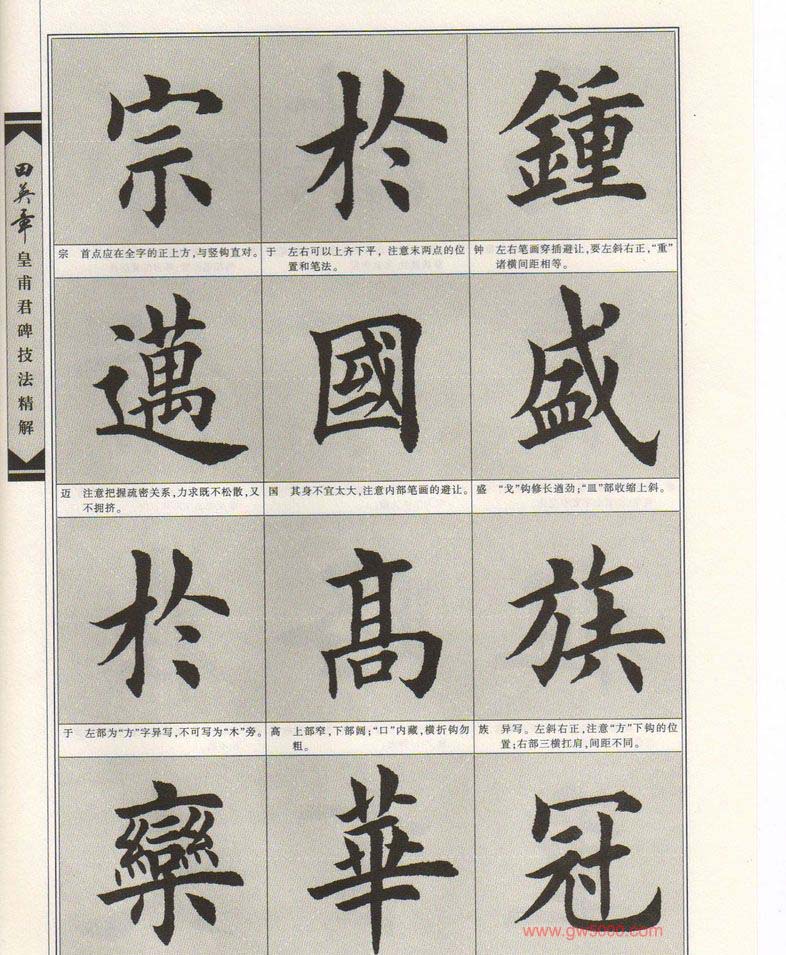 田英章
皇甫君碑技法精解
宗
於
鍾
宗 首点应在全字的正上方，与竖钩直对。
于 左右可以上齐下平，注意末两点的位
置和笔法。
钟 左右笔画穿插避让，要左斜右正，“重”
诸横间距相等。
邁
國
盛
迈 注意把握疏密关系，力求既不松散，又
不拥挤。
国 其身不宜太大，注意内部笔画的避让。
盛 “戈”钩修长遒劲；“皿”部收缩上斜。
於
高
族
于 左部为“方”字异写，不可写为“木”旁。
高 上部窄，下部阔；“口”内藏，横折钩勿
粗。
族 异写。左斜右正，注意“方”下钩的位
置；右部三横扛肩，间距不同。
欒
華
冠
www.gw5000.com